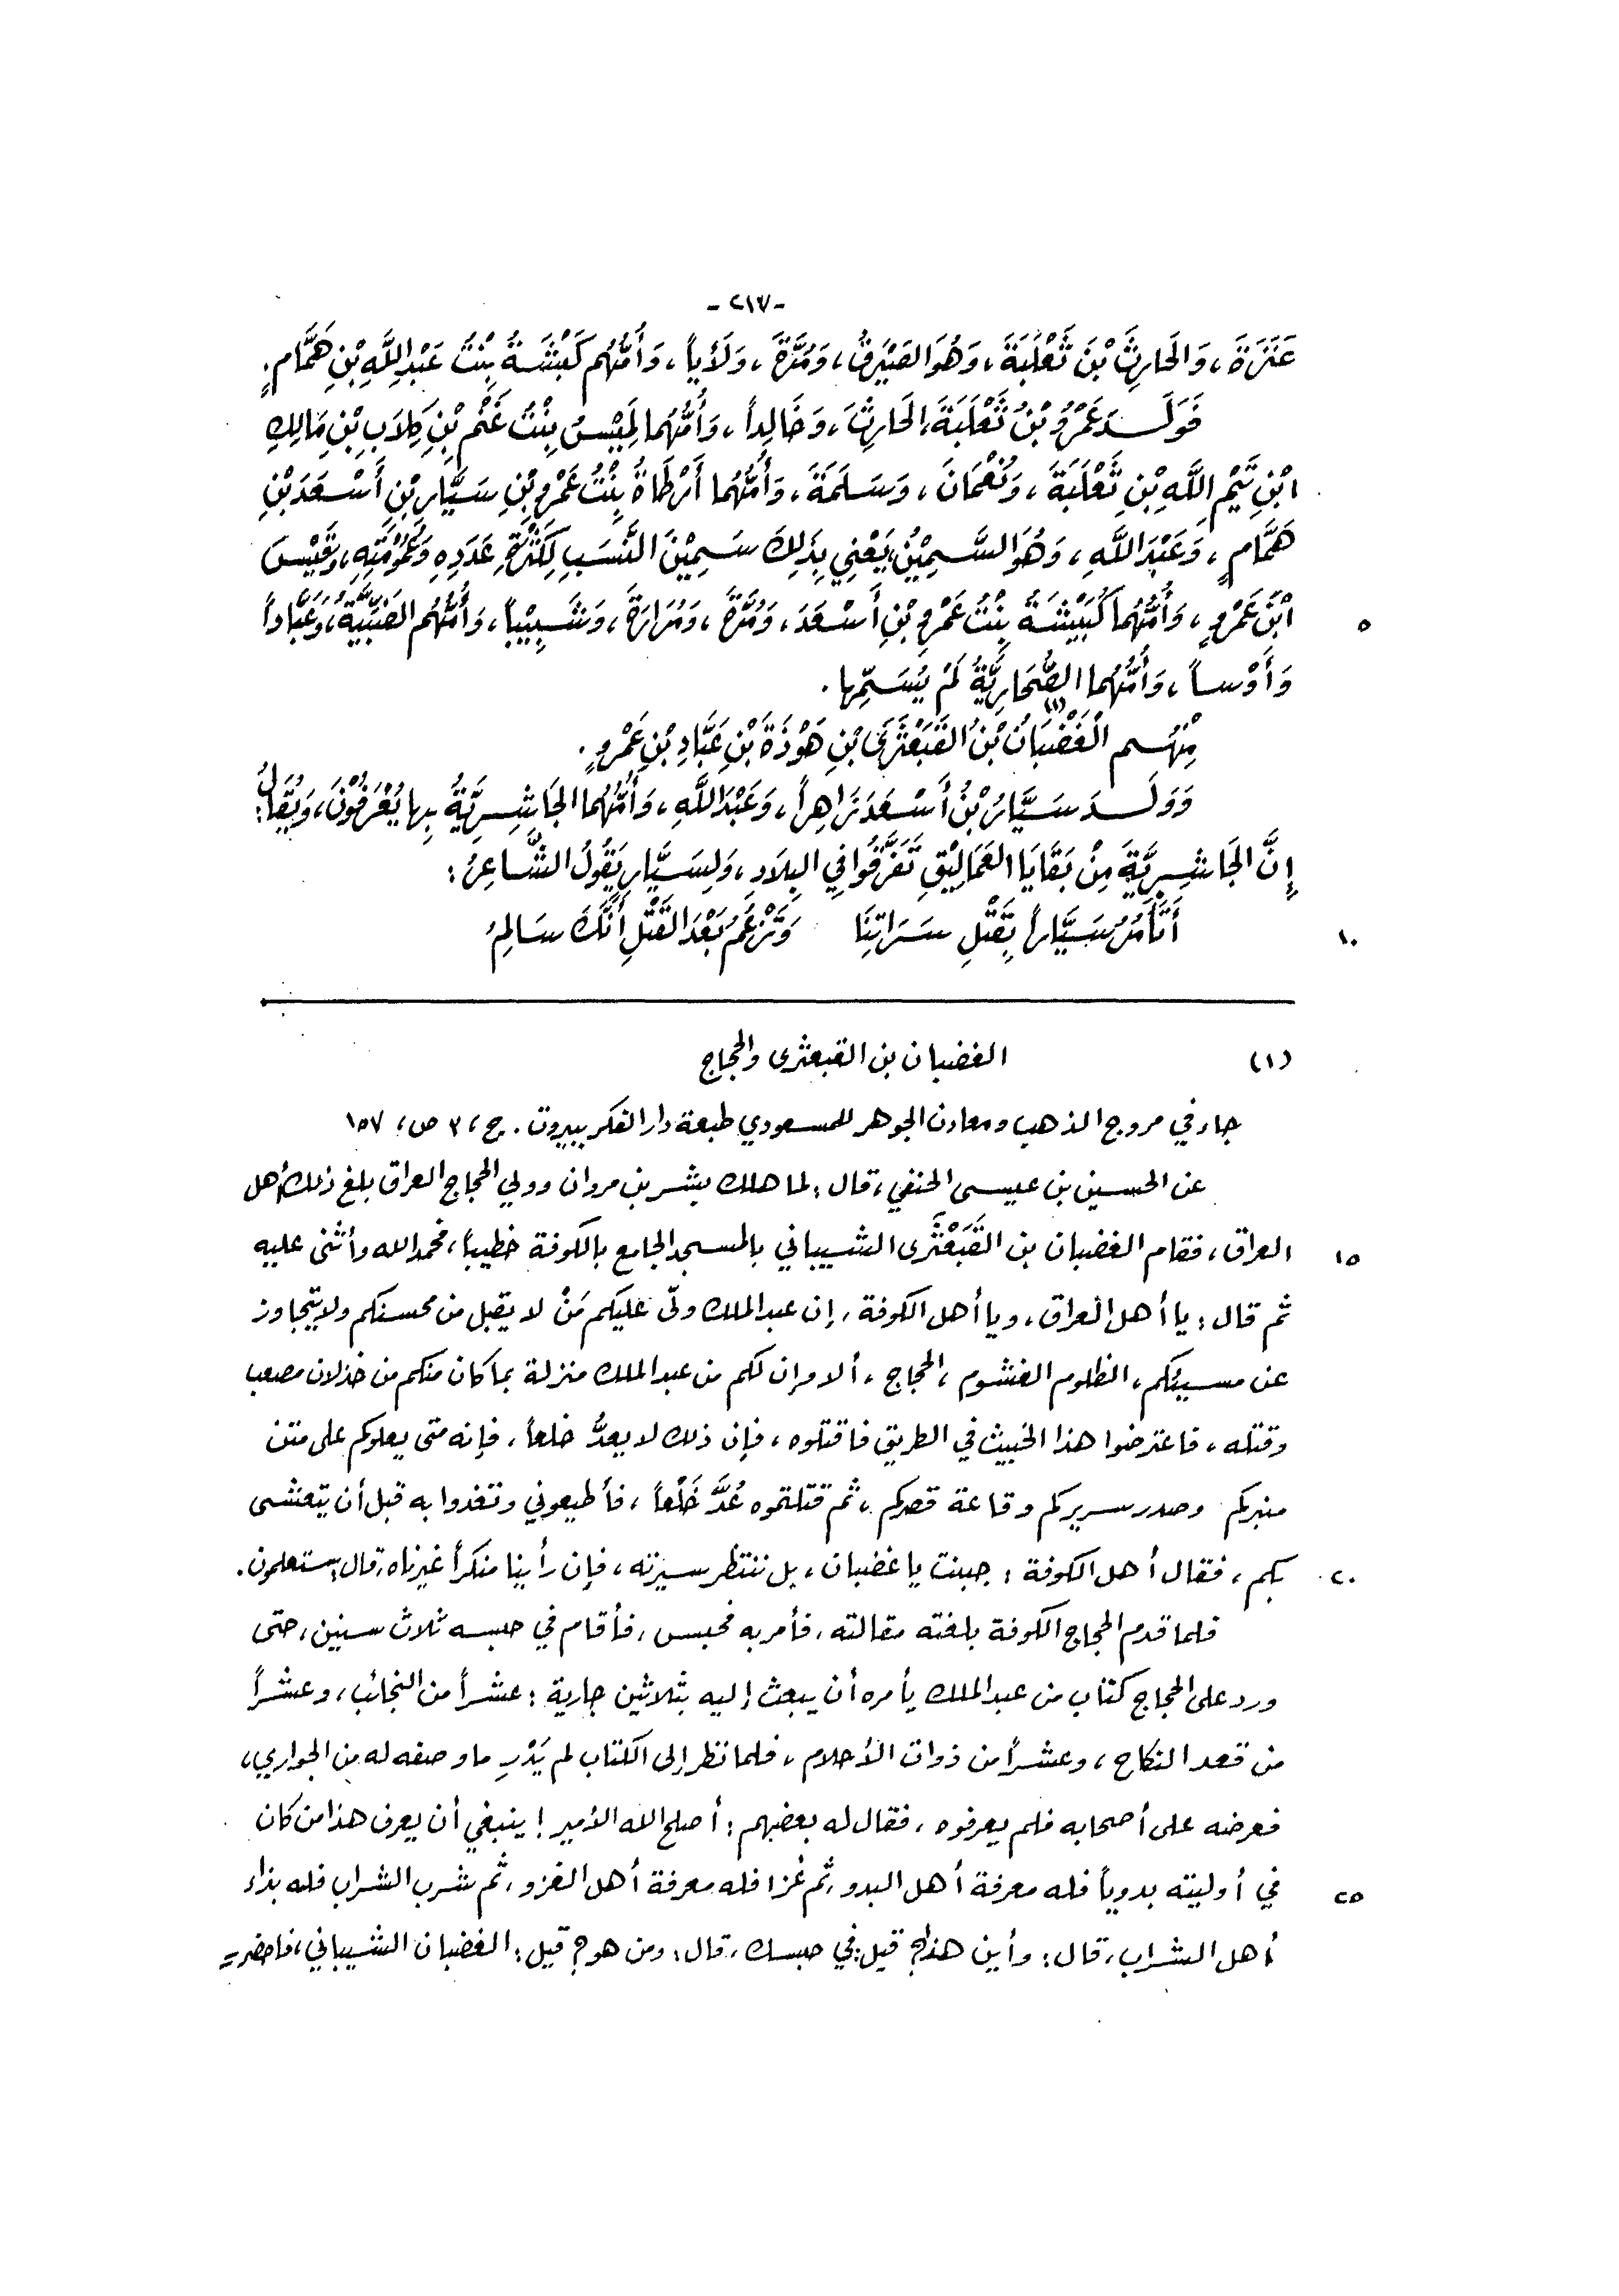 - ٢١٧ -
عَنَزَةَ، وَالحَارِثَ بْنَ ثَعْلَبَةَ، وَهُوَ الصَّيْرَفُ، وَمُرَّةَ، وَلَأْياً، وَأُمُّهُم كَبْشَةُ بِنْتُ عَبْدِ اللَّهِ بْنِ هَمَّامٍ.
فَوَلَدَ عَمْرُو بْنُ ثَعْلَبَةَ، الحَارِثَ، وَخَالِداً، وَأُمُّهُما لَمِيْسُ بِنْتُ غَنْمِ بْنِ كِلَابِ بْنِ مَالِكِ
ابْنِ تَيْمِ اللَّهِ بْنِ ثَعْلَبَةَ، وَنُعْمَانَ، وَسَلَمَةَ، وَأُمُّهُما أَرْطَاةُ بِنْتُ عَمْرِو بْنِ سَيَّارِ بْنِ أَسْعَدَ بْنِ
هَمَّامٍ، وَعَبْدَ اللَّهِ، وَهُوَ السَّمِيْنُ، يَعْنِي بِذَلِكَ سَمِيْنَ النَّسَبِ لِكَثْرَةِ عَدَدِهِ وَعُمُوْمَتِهِ، وَقَيْسَ
ابْنَ عَمْرٍو، وَأُمُّهُما كُبَيْشَةُ بِنْتُ عَمْرِو بْنِ أَسْعَدَ، وَمُرَّةَ، وَمُرَارَةَ، وَشَبِيْباً، وَأُمُّهُم الضَّبِّيَّةُ، وَعَبَّاداً
٥
وَأَوْساً، وَأُمُّهُما الصُّحَارِيَّةُ لَمْ يُسَمِّها.
مِنْهُم الْغَضْبَانُ بْنُ القَبَعْثَرَى (١) بْنِ هَوْذَةَ بْنِ عَبَّادِ بْنِ عَمْرٍو.
وَوَلَدَ سَيَّارُ بْنُ أَسْعَدَ زَاهِراً، وَعَبْدَ اللَّهِ، وَأُمُّهُما الجَاشِرِيَّةُ بِها يُعْرَفُوْنَ، وَيُقَالُ:
إِنَّ الجَاشِرِيَّةَ مِنْ بَقَايَا العَمَالِيْقِ تَفَرَّقُوا فِي البِلَادِ، وَلِسَيَّارٍ يَقُولُ الشَّاعِرُ:
أَتَأْمُرُ سَيَّاراً بِقَتْلِ سَرَاتِنَا وَتَزْعُمُ بَعْدَ القَتْلِ أَنَّكَ سَالِمُ
١٠
(١) الغضبان بن القبعثرى والحجاج
جاء في مروج الذهب ومعادن الجوهر للمسعودي طبعة دار الفكر ببيروت. ج، ٣ ص، ١٥٧
عن الحسين بن عيسى الحنفي، قال: لما هلك بشر بن مروان وولي الحجاج العراق بلغ ذلك أهل
العراق، فقام الغضبان بن القَبَعْثَرى الشيباني بالمسجد الجامع بالكوفة خطيباً، فحمد الله وأثنى عليه
١٥
ثم قال: يا أهل العراق، ويا أهل الكوفة، إن عبد الملك ولّى عليكم مَنْ لا يقبل من محسنكم ولا يتجاوز
عن مسيئكم، الظلوم الغشوم، الحجاج، ألا وإن لكم من عبد الملك منزلة بما كان منكم من خذلان مصعب
وقتله، فاعترضوا هذا الخبيث في الطريق فاقتلوه، فإن ذلك لا يعدُّ خلعاً، فإنه متى يعلوكم على متن
منبركم وصدر سريركم وقاعة قصركم، ثم قتلتموه عُدَّ خَلْعاً، فأطيعوني وتغدوا به قبل أن يتعشى
بكم، فقال أهل الكوفة: جبنت يا غضبان، بل ننتظر سيرته، فإن رأينا منكراً غيرناه، قال: ستعلمون.
٢٠
فلما قدم الحجاج الكوفة بلغته مقالته، فأمر به فحبس، فأقام في حبسه ثلاث سنين، حتى
ورد على الحجاج كتاب من عبد الملك يأمره أن يبعث إليه بثلاثين جارية: عشراً من النجائب، وعشراً
من قعد النكاح، وعشراً من ذوات الأحلام، فلما نظر إلى الكتاب لم يَدْرِ ما وصفه له من الجواري،
فعرضه على أصحابه فلم يعرفوه، فقال له بعضهم: أصلح الله الأمير! ينبغي أن يعرف هذا من كان
في أوليته بدوياً فله معرفة أهل البدو، ثم غزا فله معرفة أهل الغزو، ثم شرب الشراب فله بذاء
٢٥
أهل الشراب، قال: وأين هذا؟ قيل: في حبسك، قال: ومن هو؟ قيل: الغضبان الشيباني، فاحضر =